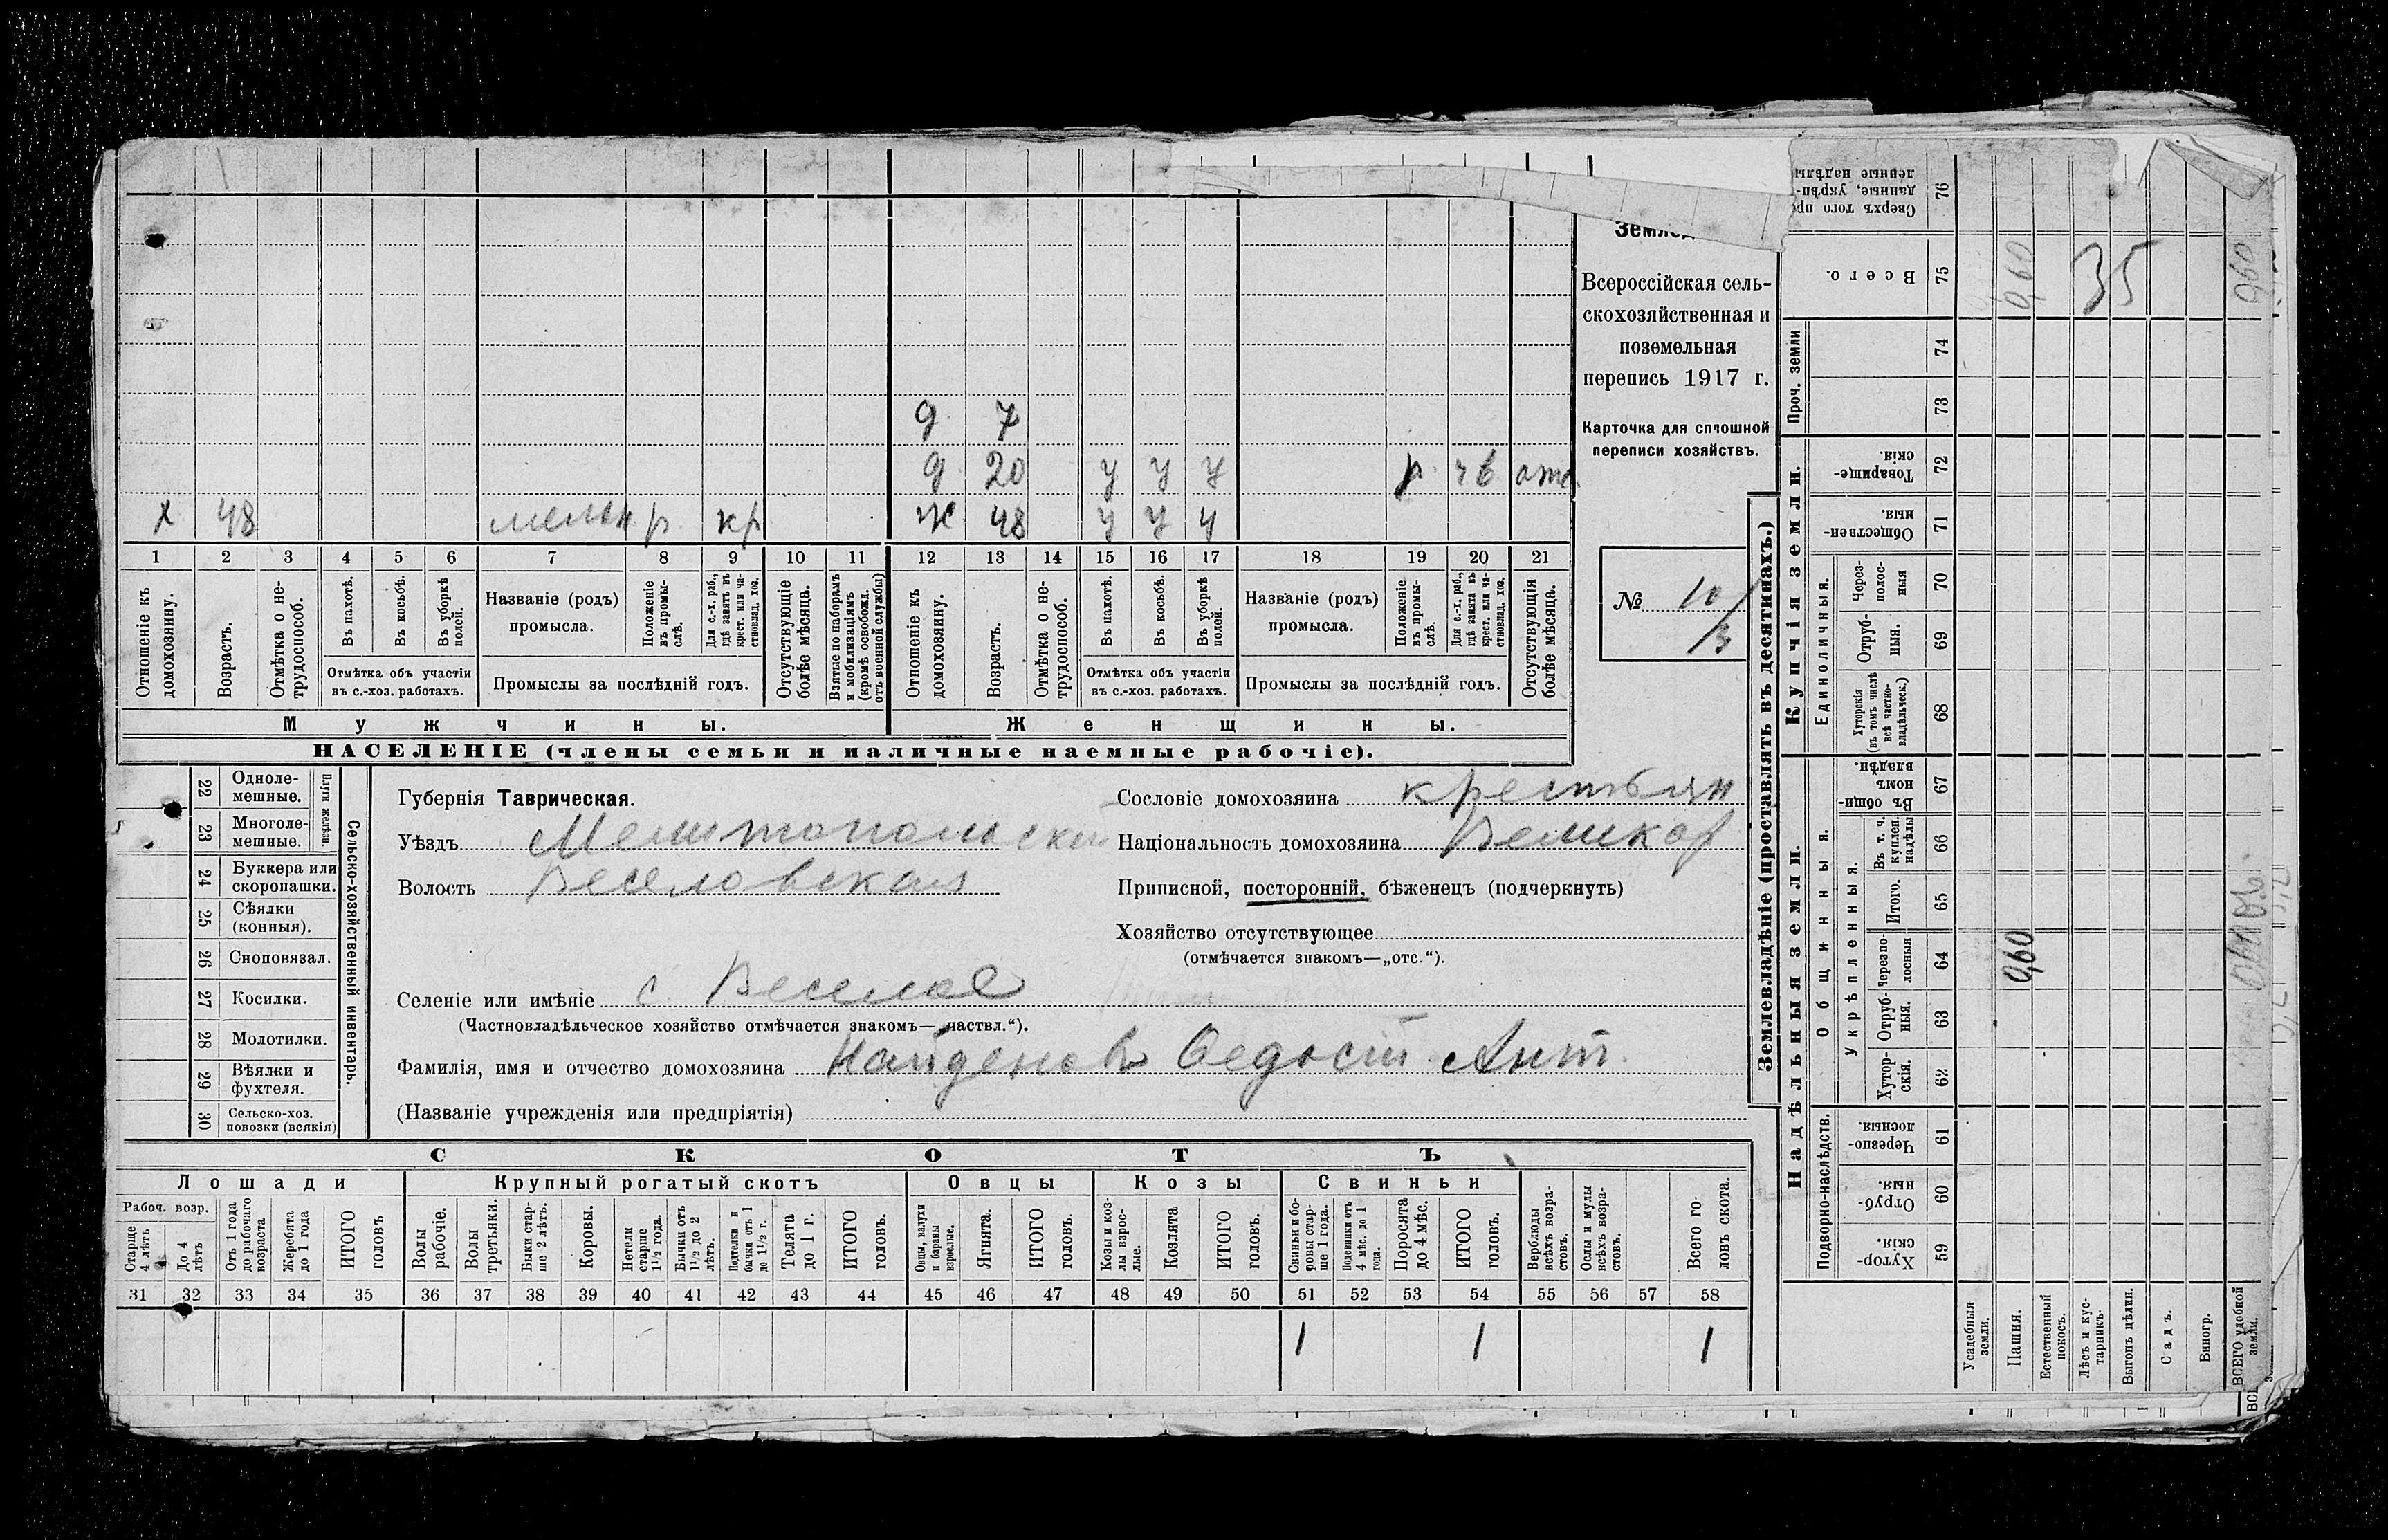 д 7
д 20 у у у р чв отс
х 48 мельн р кр ж 48 у у у
1 2 3 4 5 6 7 8 9 10 11 12 13 14 15 16 17 18 19 20 21
Отношеніе къ домохозяину.
Возрастъ.
Отмѣтка о не-
трудоспособ.
Въ пахотѣ.
Въ косьбѣ.
Въ уборкѣ
полей.
Отмѣтка объ участіи
въ с.-хоз. работахъ.
Названіе (родъ)
промысла.
Положеніе
въ промы-
слѣ.
Для с.-х. раб.,
гдѣ занятъ въ
крест. или ча-
стновлад. хоз.
Промыслы за послѣдній годъ.
Отсутствующіе
болѣе мѣсяца.
Взятые по наборамъ
и мобилизаціямъ
(кромѣ освобожд.
отъ военной службы)
Отношеніе къ
домохозяину.
Возрастъ.
Отмѣтка о не-
трудоспособ.
Въ пахотѣ.
Въ косьбѣ.
Въ уборкѣ
полей.
Отмѣтка объ участіи
въ с.-хоз. работахъ.
Названіе (родъ)
промысла.
Положеніе
въ промы-
слѣ.
Для с.-х. раб.,
гдѣ занята въ
крест. или ча-
стновлад. хоз.
Промыслы за послѣдній годъ.
Отсутствующія
болѣе мѣсяца.
Мужчины.
Женщины.
НАСЕЛЕНІЕ (члены семьи и наличные наемные рабочіе).
Всероссійская сель-
скохозяйственная и
поземельная
перепись 1917 г.
Карточка для сплошной
переписи хозяйствъ.
№ 10/3
22 Одноле-
мешные.
23 Многоле-
мешные.
Плуги желѣзн.
24 Буккера или
скоропашки.
25 Сѣялки
(конныя).
26 Сноповязал.
27 Косилки.
28 Молотилки.
29 Вѣялки и
фухтеля.
30 Сельско-хоз.
повозки (всякія)
Сельско-хозяйственный инвентарь.
Губернія Таврическая.
Уѣздъ Мелитопольскій
Волость Веселовская
Сословіе домохозяина крестьян
Національность домохозяина Великор
Приписной, посторонній, бѣженецъ (подчеркнуть)
Хозяйство отсутствующее
(отмѣчается знакомъ—„отс.“).
Селеніе или имѣніе с Веселое
(Частновладѣльческое хозяйство отмѣчается знакомъ—„частвл.“).
Фамилія, имя и отчество домохозяина Найденовъ Ѳедост Ант.
(Названіе учрежденія или предпріятія)
СКОТЪ
Лошади
Крупный рогатый скотъ
Овцы
Козы
Свиньи
Рабоч. возр.
Старше
4 лѣтъ
До 4
лѣтъ
Отъ 1 года
до рабочаго
возраста
Жеребята
до 1 года
ИТОГО
головъ
Волы
рабочіе.
Волы
третьяки.
Быки стар-
ше 2 лѣтъ.
Коровы.
Нетели
старше
1½ года.
Бычки отъ
1½ до 2
лѣтъ.
Подтелки и
бычки отъ 1
до 1½ г.
Телята
до 1 г.
ИТОГО
головъ.
Овцы, валухи
и бараны
взрослые.
Ягнята.
ИТОГО
головъ.
Козы и коз-
лы взрос-
лые.
Козлята
ИТОГО
головъ.
Свиньи и бо-
ровы стар-
ше 1 года.
Подсвинки отъ
4 мѣс. до 1
года.
Поросята
до 4 мѣс.
ИТОГО
головъ.
Верблюды
всѣхъ возра-
стовъ.
Ослы и мулы
всѣхъ возра-
стовъ.
Всего го-
ловъ скота.
31 32 33 34 35 36 37 38 39 40 41 42 43 44 45 46 47 48 49 50 51 52 53 54 55 56 57 58
1 1 1
Землевладѣніе (проставлять въ десятинахъ.)
76 Сверхъ того про
данные, укрѣп-
ленные надѣлы
75 Всего. 0,60 35 0,60
Проч. земли
74
73
Купчія земли.
72 Товарище-
скія.
71 Обществен-
ныя.
Единоличныя.
70 Через-
полос-
ныя
69 Отруб-
ныя.
68 Хуторскія
(въ томъ числѣ
всѣ частно-
владѣльческ.)
Надѣльныя земли.
Общинныя.
67 Въ общи-
номъ
владѣн.
Укрѣпленныя.
66 Въ т. ч.
куплен.
надѣлы
65 Итого.
64 Черезпо-
лосныя 0,60
63 Отруб-
ныя.
62 Хутор-
скія.
Подворно-наслѣдств.
61 Черезпо-
лосныя.
60 Отруб-
ныя.
59 Хутор-
скія.
Усадебныя
земли.
Пашня.
Естественный
покосъ.
Лѣсъ и кус-
тарникъ.
Выгонъ цѣлин.
Садъ.
Виногр.
ВСЕГО удобной
земли.